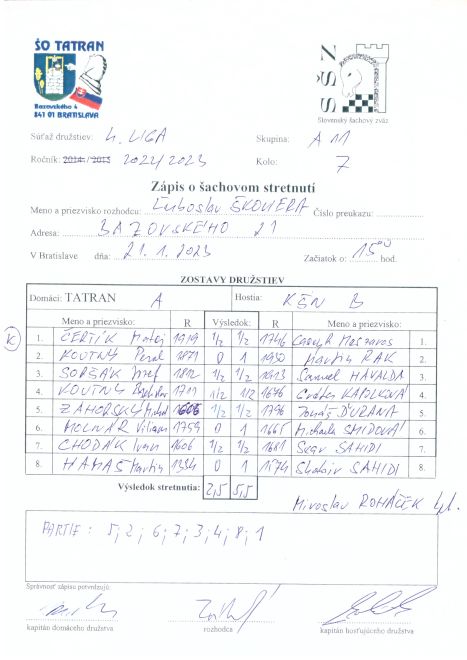 ŠO TATRAN
Bazovského 4
841 01 BRATISLAVA
SŠZ
Slovenský šachový zväz
Súťaž družstiev: 4. LIGA Skupina: A 11
Ročník: 2014 /2015 2022/2023 Kolo: 7
Zápis o šachovom stretnutí
Meno a priezvisko rozhodcu: Ľuboslav ŠKOVIERA Číslo preukazu:
Adresa: BAZOVSKÉHO 21
V Bratislave dňa: 21.1.2023 Začiatok o: 15⁰⁰ hod.
ZOSTAVY DRUŽSTIEV
Domáci: TATRAN A Hostia: KŠN B
Meno a priezvisko: R Výsledok: R Meno a priezvisko:
K 1. ČERTÍK Matej 1919 1/2 1/2 1746 Meszaros 1.
2. KOUTNÝ 1871 0 1 1930 Martin RAK 2.
3. Jozef 1812 1/2 1/2 1413 Samuel HAVALDA 3.
4. KOUTNÝ 1711 1/2 1/2 1676 4.
5. ZÁHORSKÝ Michal 1/2 1/2 1796 Tomáš ĎURAŇA 5.
6. MOLNÁR Viliam 1759 0 1 1665 Michaela ŠMÍDOVÁ 6.
7. CHODÁK Ivan 1606 1/2 1/2 1681 SAHIDI 7.
8. HAMAŠ Martin 1334 0 1 1574 SAHIDI 8.
Výsledok stretnutia: 2,5 5,5
Miroslav ROHÁČEK
PARTIE: 5; 2; 6; 7; 3; 4; 8; 1
Správnosť zápisu potvrdzujú:
kapitán domáceho družstva rozhodca kapitán hosťujúceho družstva